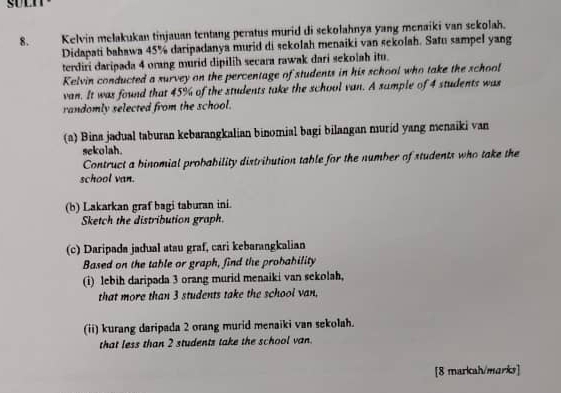 SULIT
8. Kelvin melakukan tinjauan tentang peratus murid di sekolahnya yang menaiki van sekolah.
Didapati bahawa 45% daripadanya murid di sekolah menaiki van sekolah. Satu sampel yang
terdiri daripada 4 orang murid dipilih secara rawak dari sekolah itu.
Kelvin conducted a survey on the percentage of students in his school who take the school
van. It was found that 45% of the students take the school van. A sample of 4 students was
randomly selected from the school.
(a) Bina jadual taburan kebarangkalian binomial bagi bilangan murid yang menaiki van
sekolah.
Contruct a binomial probability distribution table for the number of students who take the
school van.
(b) Lakarkan graf bagi taburan ini.
Sketch the distribution graph.
(c) Daripada jadual atau graf, cari kebarangkalian
Based on the table or graph, find the probability
(i) lebih daripada 3 orang murid menaiki van sekolah,
that more than 3 students take the school van,
(ii) kurang daripada 2 orang murid menaiki van sekolah.
that less than 2 students take the school van.
[8 markah/marks]